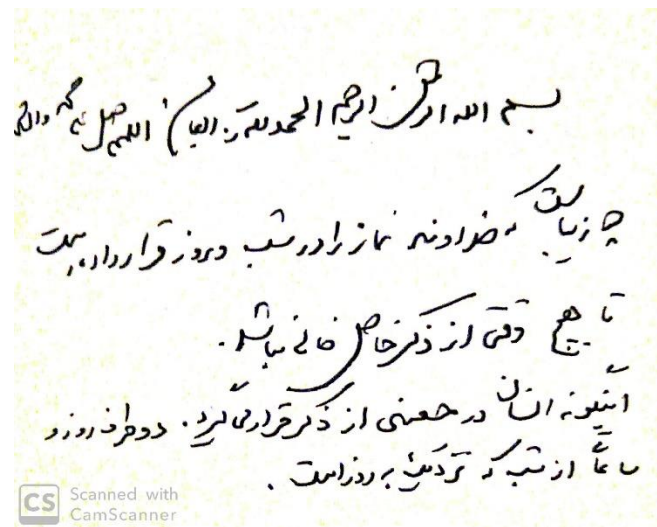 بسم الله الرحمن الرحیم الحمدلله رب العالمین اللهم صل علی محمد وآل
چه زیباست که خداوند نماز را در شب و روز قرار داده است
تا هیچ وقتی از ذکر خاص خالی نباشد.
اینگونه انسان در حصنی از ذکر قرار می‌گیرد. دو طرف روز و
ساعاتی از شب که نزدیک به روز است.
CS Scanned with
CamScanner